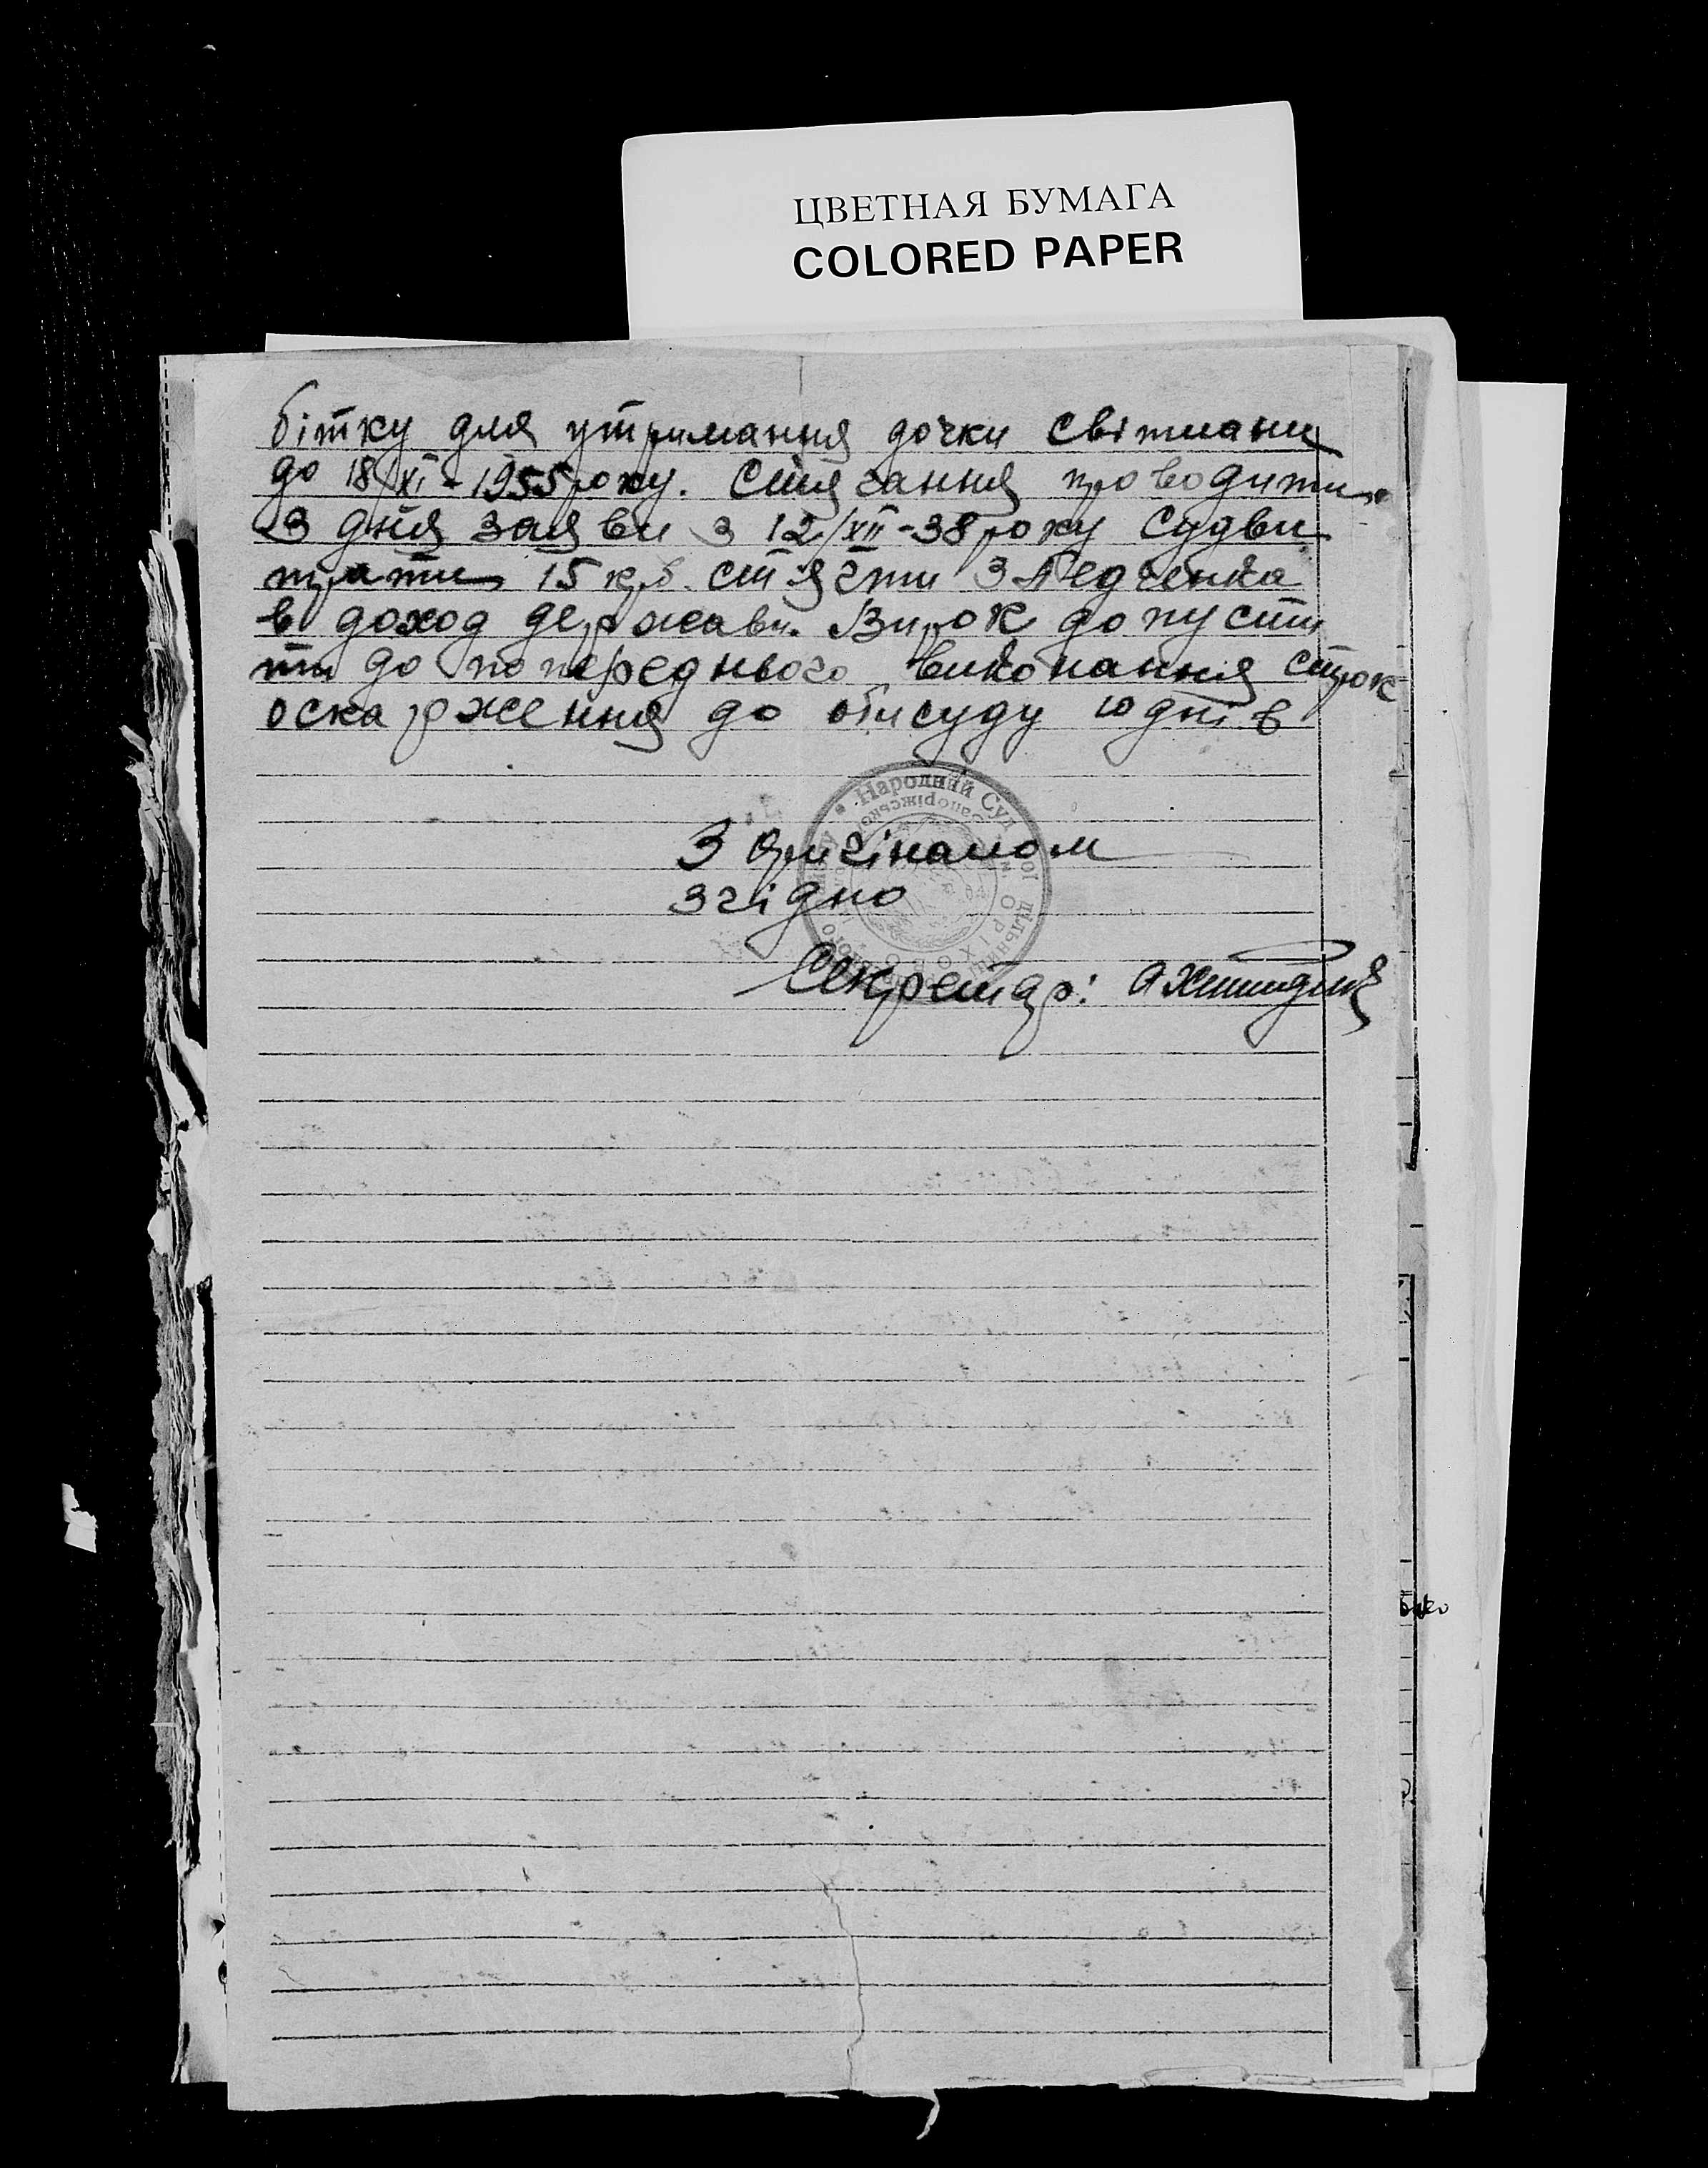 ЦВЕТНАЯ БУМАГА
COLORED PAPER
бітку для утримання дочки Світлани
до 18/XI - 1955 року. Стягання проводити
З дня заяви з 12/XII-38 року Судви
трати 15 крб. стягти З
в доход держави. Вирок допусти
ти до попереднього виконання строк
оскарження до облсуду 10 днів
Народний Суд
З Оригіналом
згідно
Секретар: